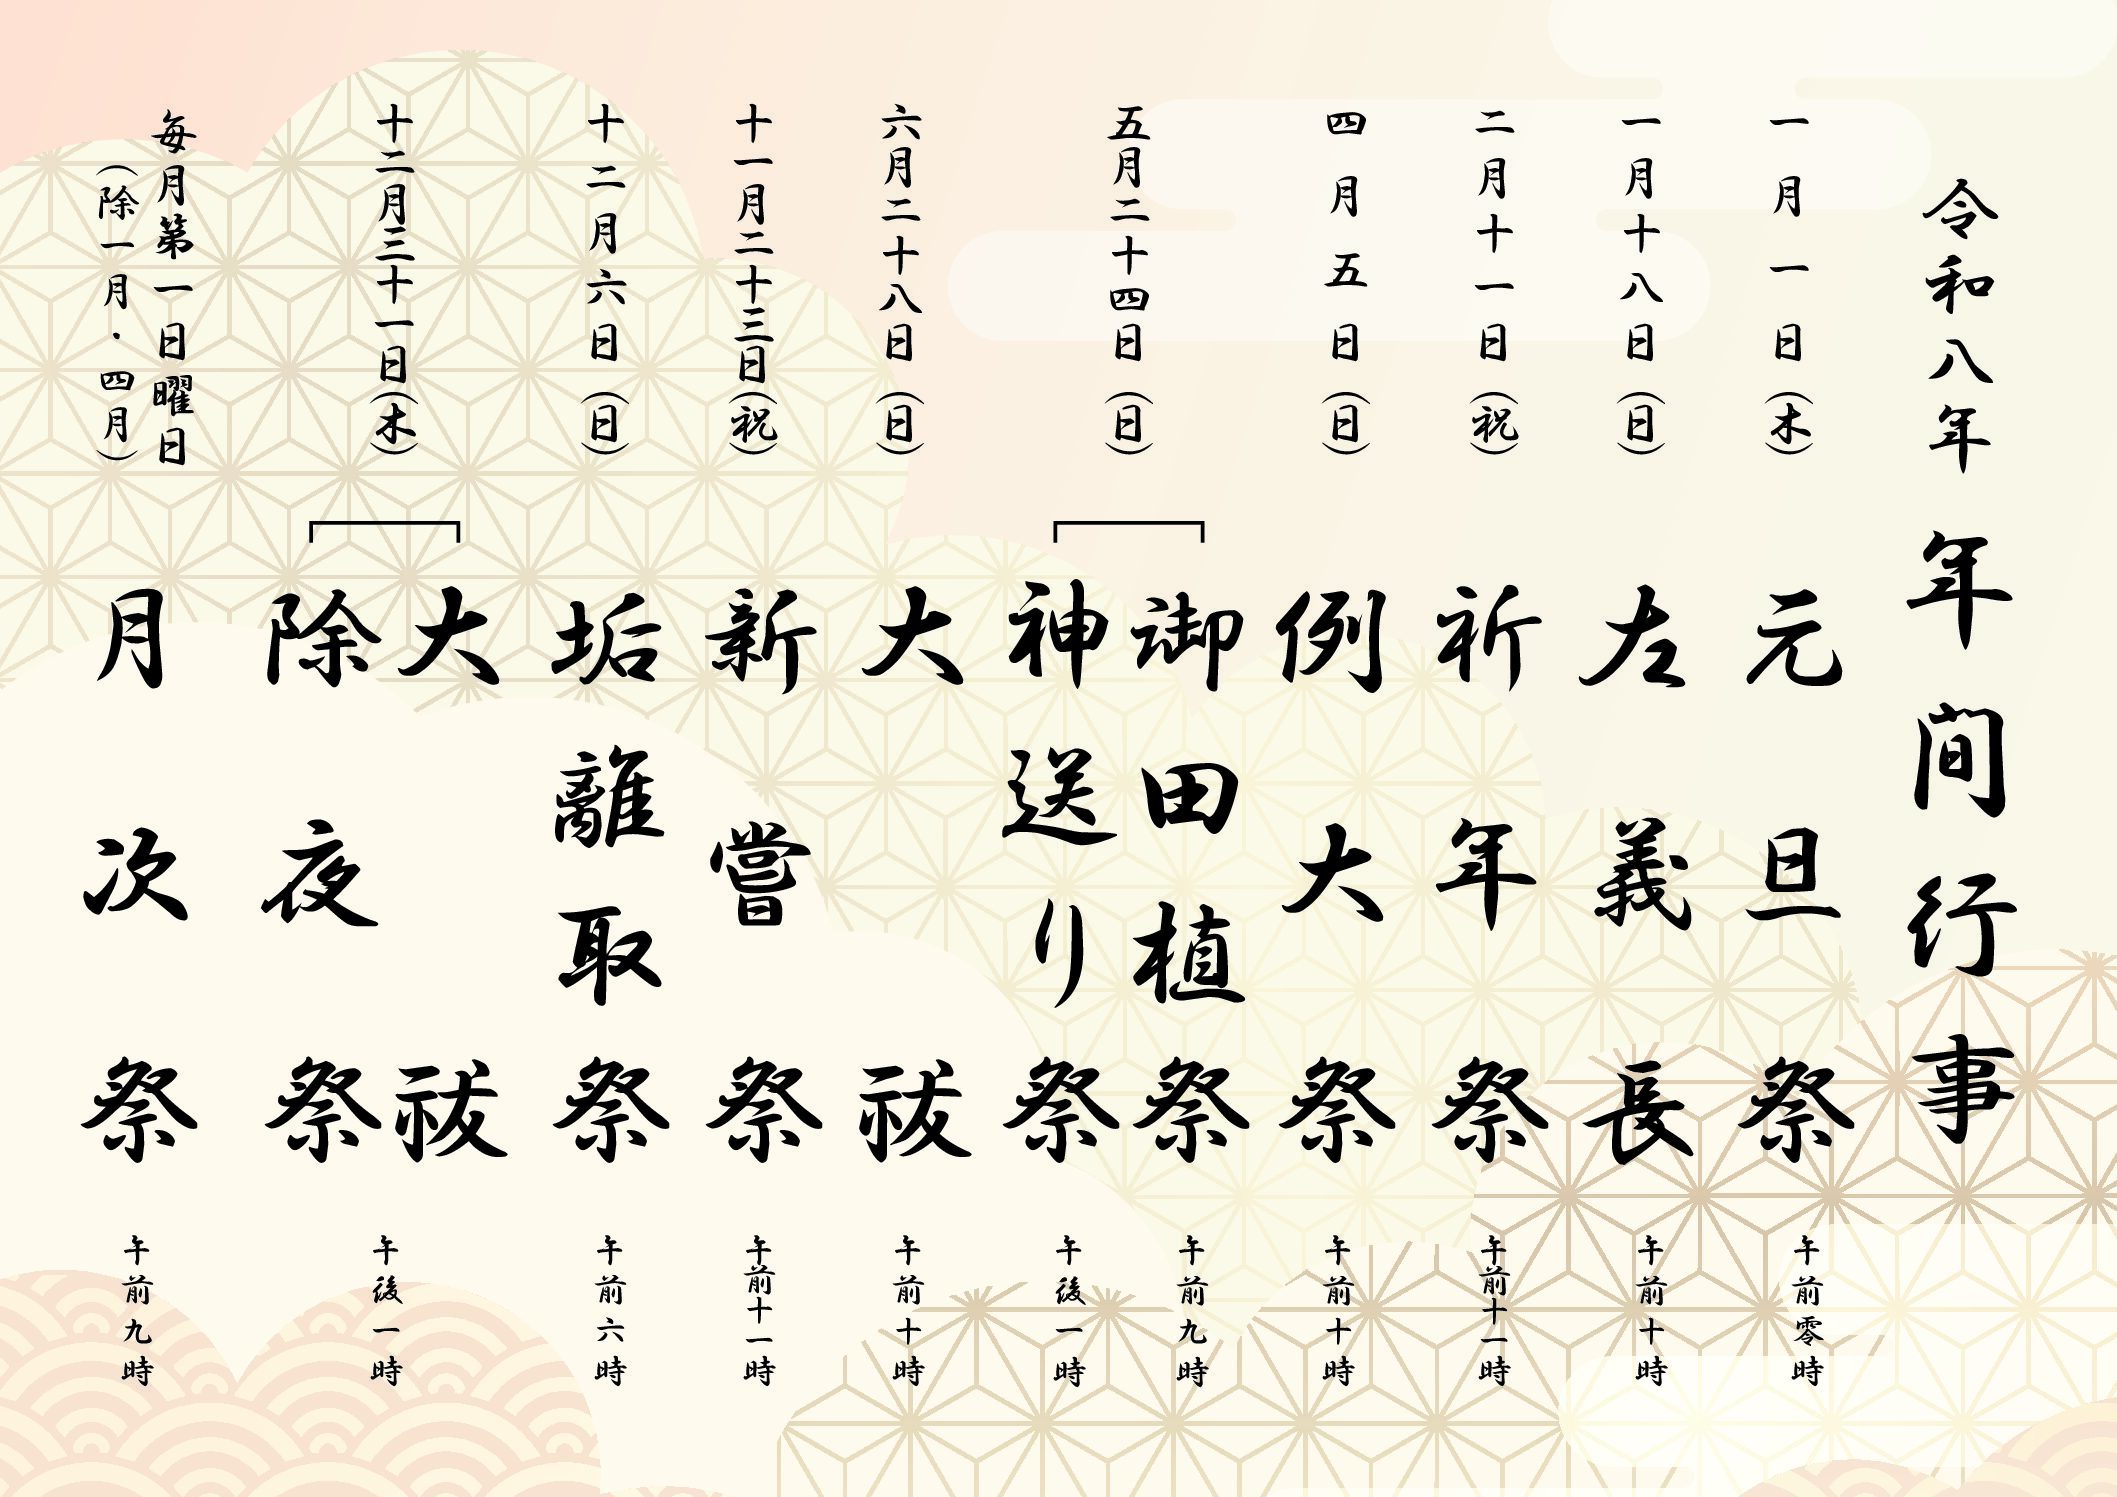 令和八年 年間行事
一月一日(木) 元旦祭 午前零時
一月十八日(日) 左義長 午前十時
二月十一日(祝) 祈年祭 午前十一時
四月五日(日) 例大祭 午前十時
五月二十四日(日) 御田植祭 午前九時
神送り祭 午後一時
六月二十八日(日) 大祓 午前十時
十一月二十三日(祝) 新嘗祭 午前十一時
十二月六日(日) 垢離取祭 午前六時
十二月三十一日(木) 大祓
除夜祭 午後一時
毎月第一日曜日
(除一月・四月) 月次祭 午前九時